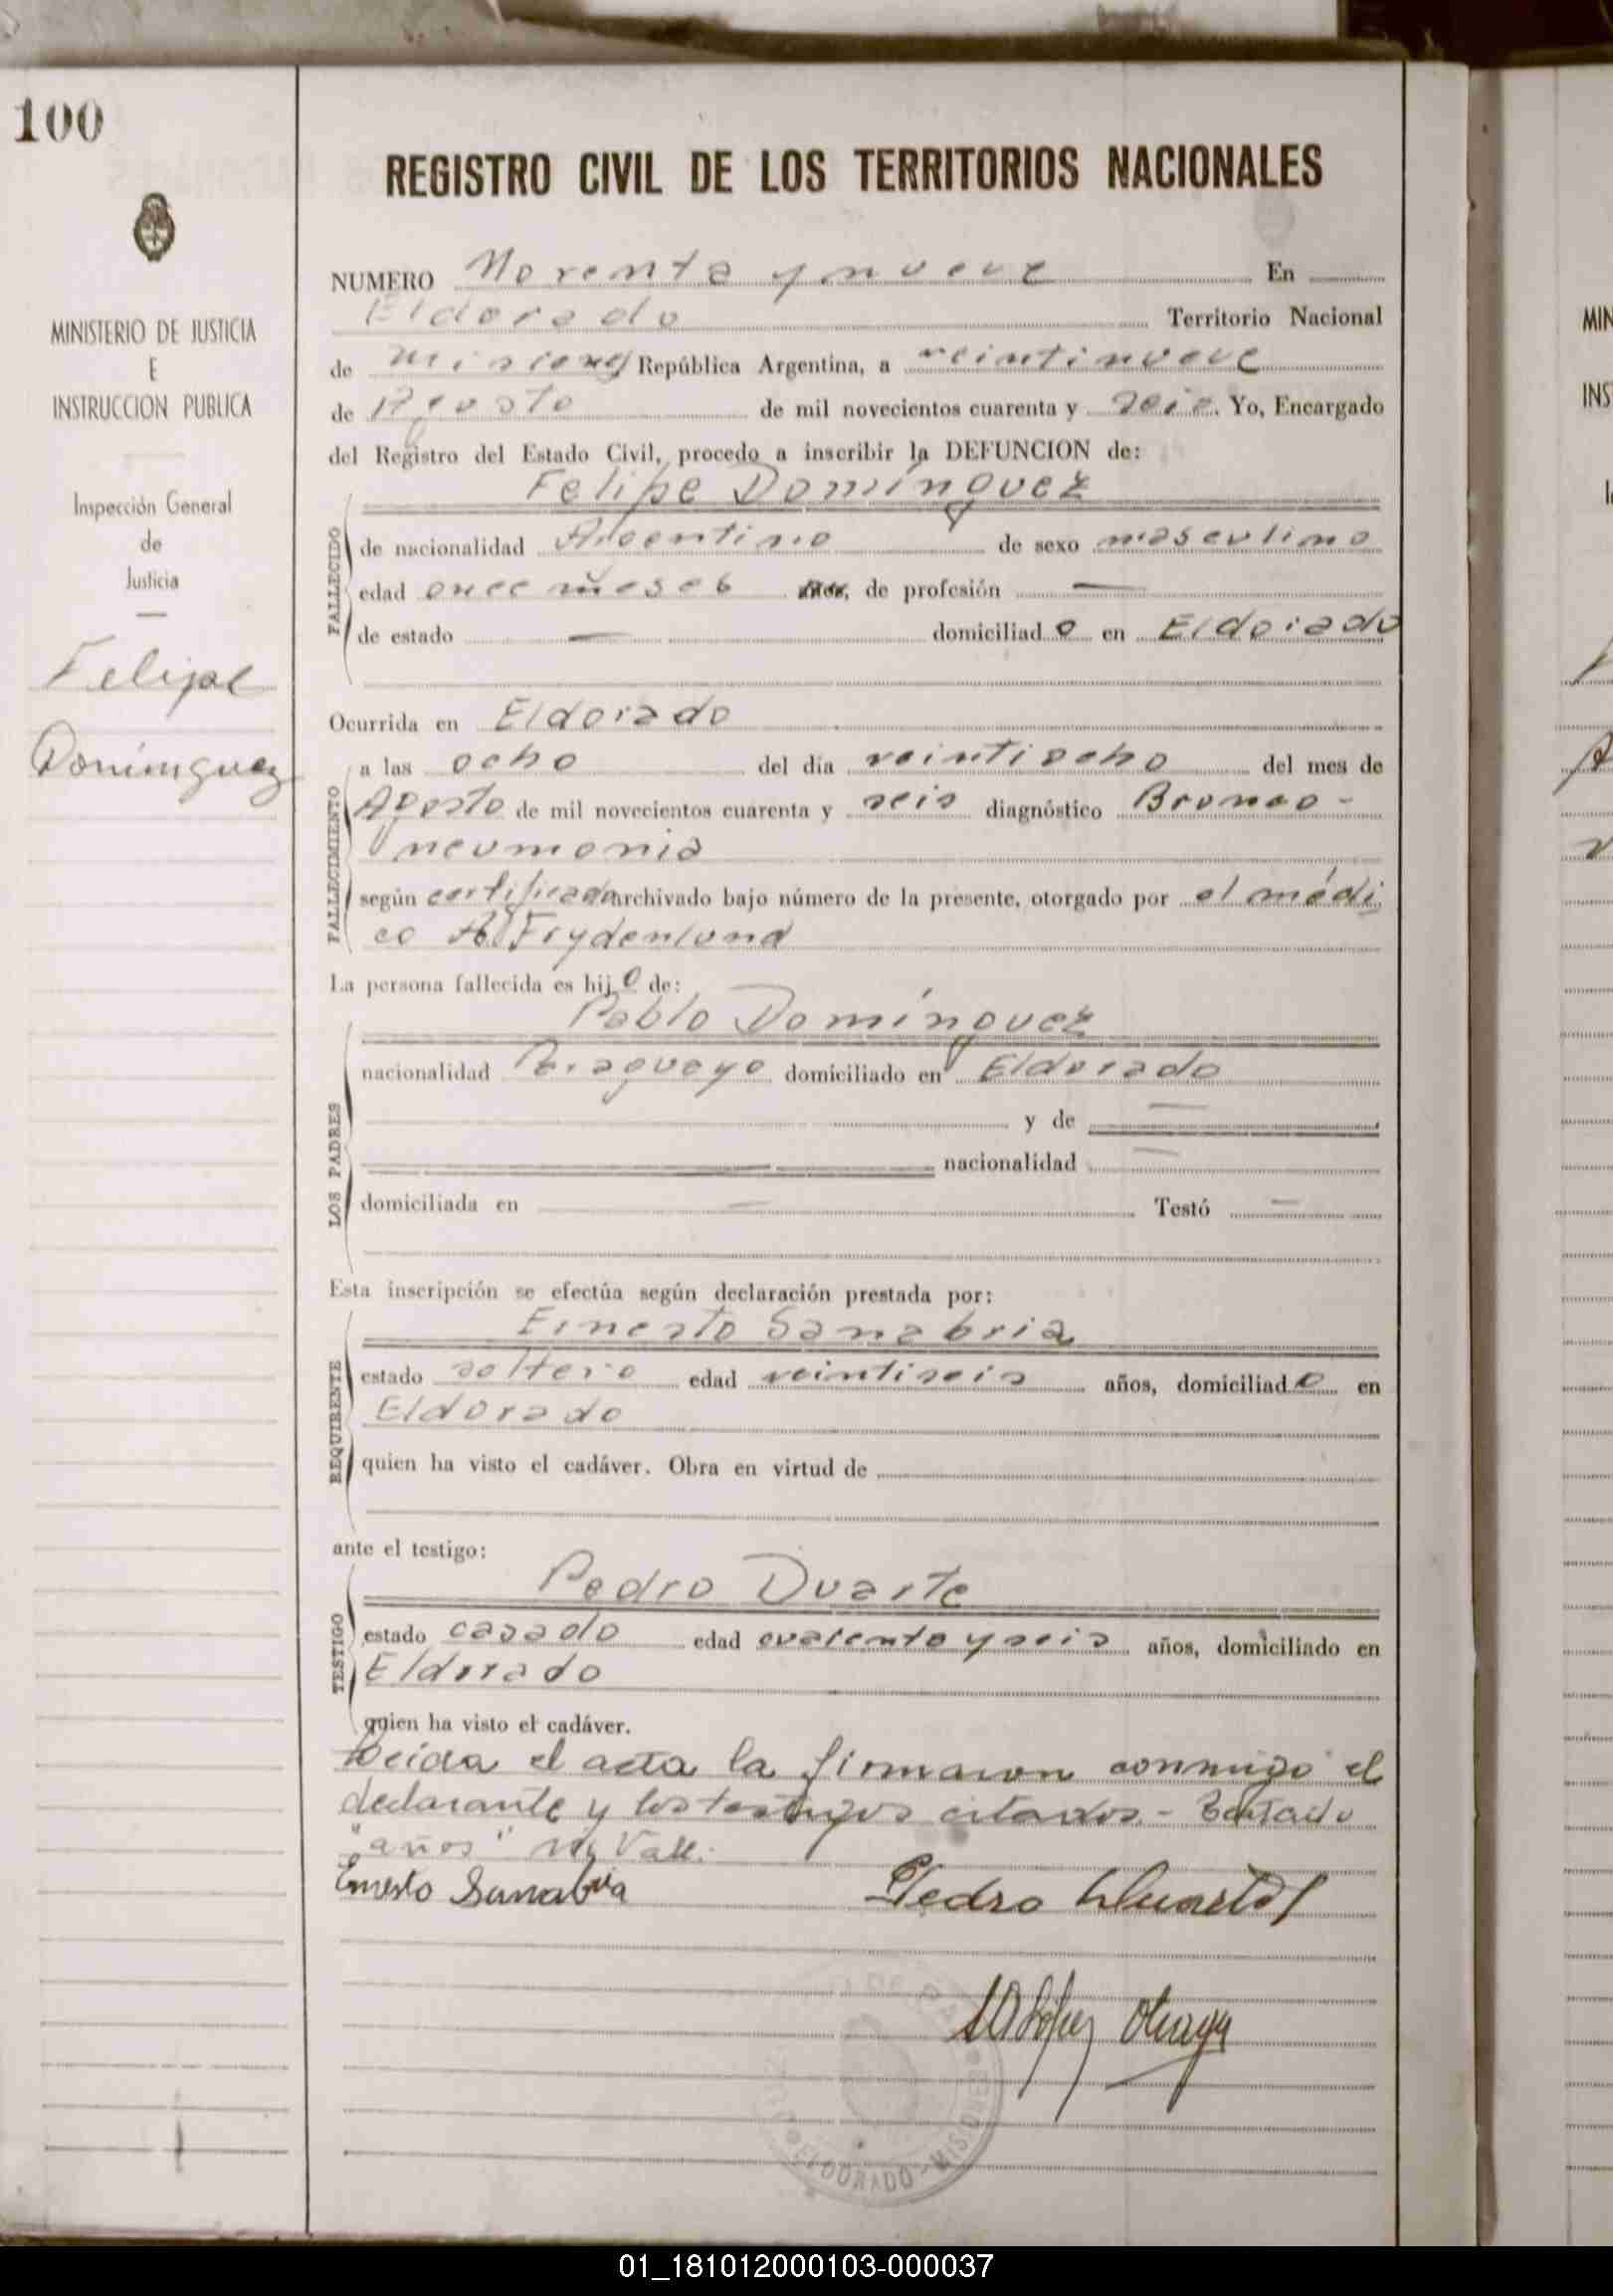 100
REGISTRO CIVIL DE LOS TERRITORIOS NACIONALES
MINISTERIO DE JUSTICIA
E
INSTRUCCION PUBLICA
Inspección General
de
Justicia
Felipe
Domínguez
NUMERO Noventa y nueve En
Eldorado Territorio Nacional
de Misiones República Argentina, a veintinueve
de Agosto de mil novecientos cuarenta y seis. Yo, Encargado
del Registro del Estado Civil, procedo a inscribir la DEFUNCION de:
Felipe Domínguez
FALLECIDO
de nacionalidad Argentino de sexo masculino
edad once meses años, de profesión —
de estado — domiciliado en Eldorado
Ocurrida en Eldorado
FALLECIMIENTO
a las ocho del día veintiocho del mes de
Agosto de mil novecientos cuarenta y seis diagnóstico Bronco-
neumonia
según certificado archivado bajo número de la presente, otorgado por el médi
co Frydenlund
La persona fallecida es hijo de:
Pablo Domínguez
LOS PADRES
nacionalidad Paraguayo domiciliado en Eldorado
y de —
nacionalidad —
domiciliada en — Testó —
Esta inscripción se efectúa según declaración prestada por:
Ernesto Sanabria
REQUIRENTE
estado soltero edad veintiseis años, domiciliado en
Eldorado
quien ha visto el cadáver. Obra en virtud de
ante el testigo:
Pedro Duarte
TESTIGO
estado casado edad cuarenta y seis años, domiciliado en
Eldorado
quien ha visto el cadáver.
Leida el acta la firmaron conmigo el
declarante y los testigos citados.- Testado
"años" No Vale.
Ernesto Sanabria Pedro Duarte
López
ELDORADO - MISIONES
MIN
INS
01_181012000103-000037